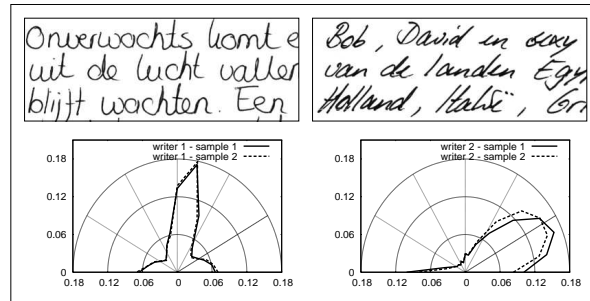 Onverwachts komt e
uit de lucht vallen
blijft wachten. Een
Bob, David en sexy
van de landen Egy
Holland, Italië, Gr
writer 1 - sample 1
writer 1 - sample 2
0.18
0.12
0.06
0
0.18 0.12 0.06 0 0.06 0.12 0.18
writer 2 - sample 1
writer 2 - sample 2
0.18
0.12
0.06
0
0.18 0.12 0.06 0 0.06 0.12 0.18